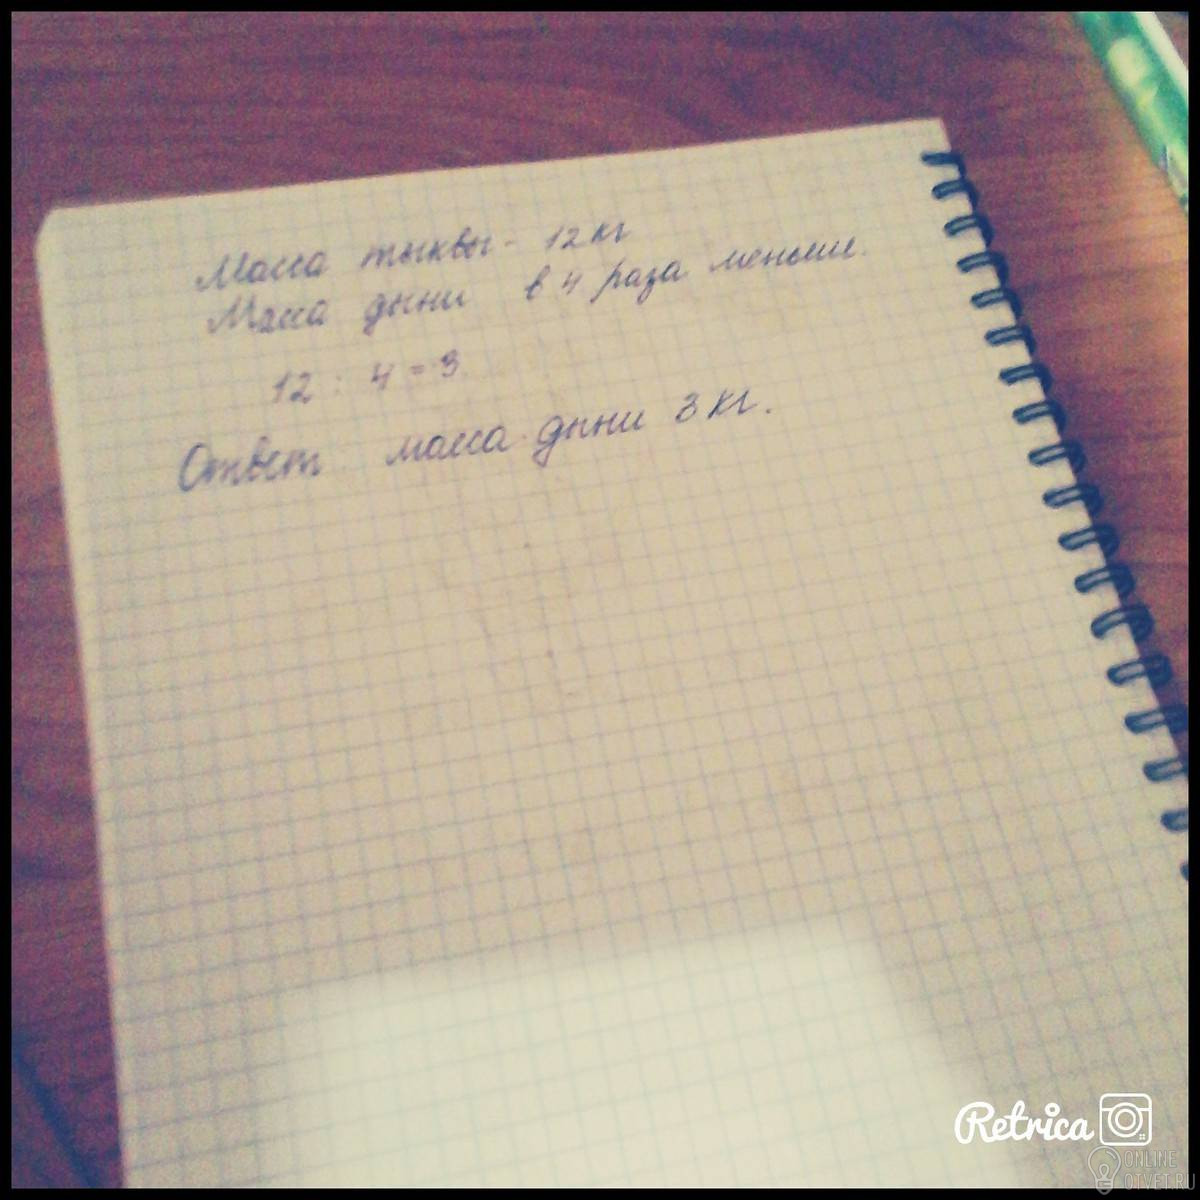 Масса тыквы - 12 кг
Масса дыни в 4 раза меньше.
12 : 4 = 3
Ответ масса дыни 3 кг.
Retrica
ONLINE
OTVET.RU